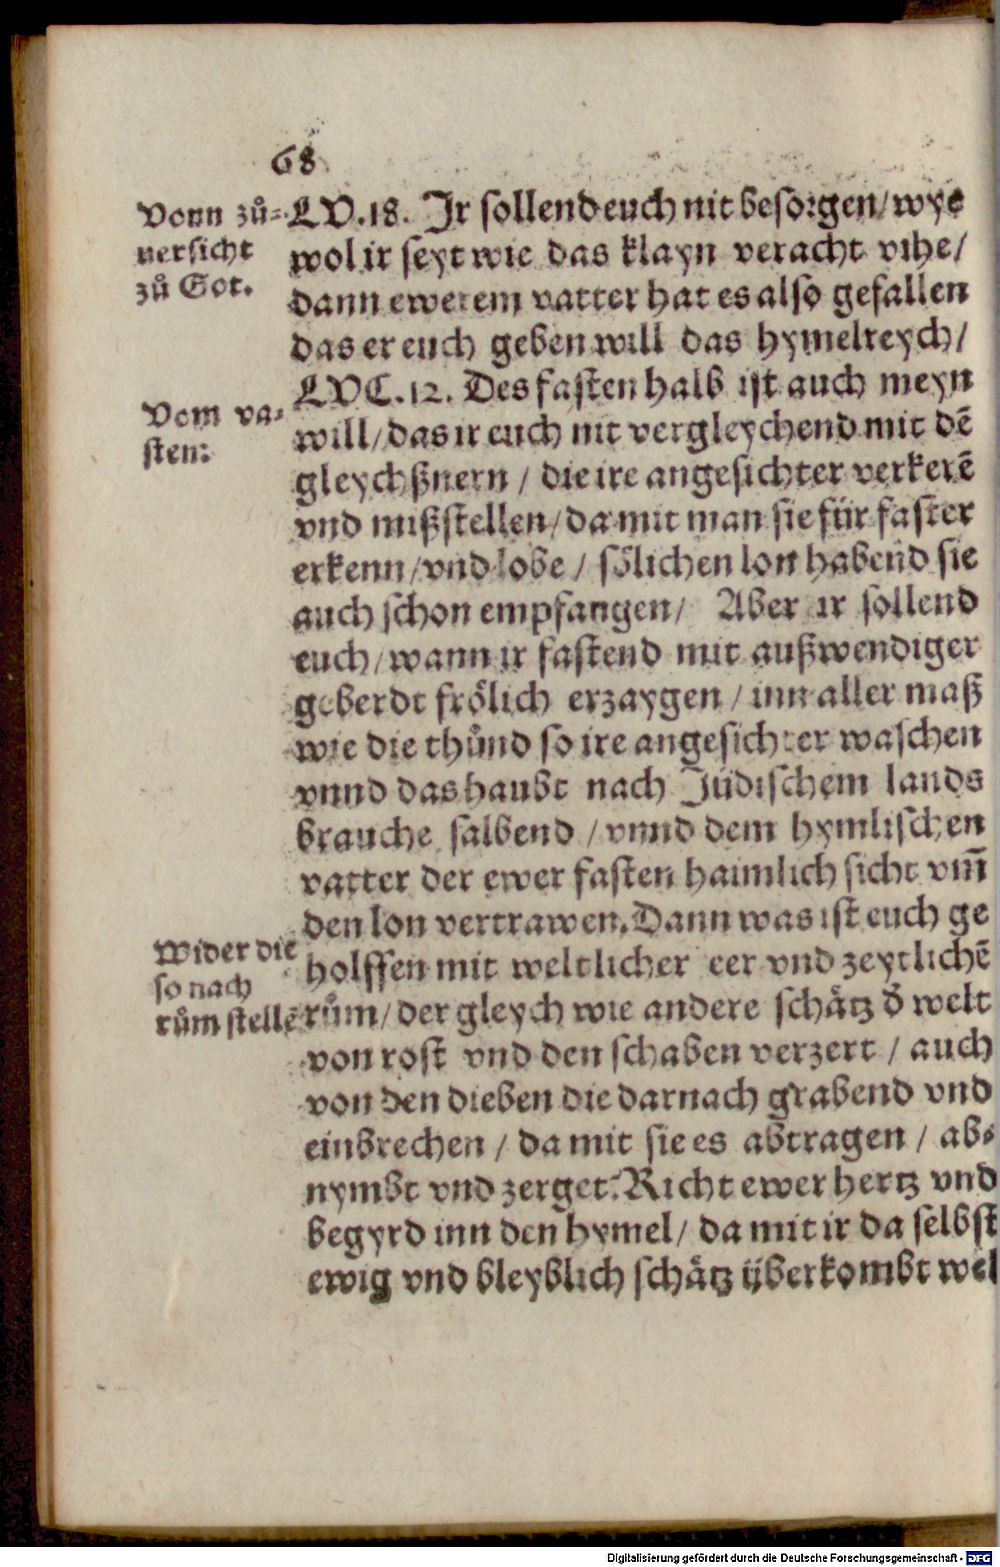 68
Vonn zů-
uersicht
zů Got.
LV.18. Jr sollend euch nit besorgen/wye
wol ir seyt wie das klayn veracht vihe/
dann ewerem vatter hat es also gefallen
das er euch geben will das hymelreych/
LVC.12. Des fasten halb ist auch meyn
Vom va-
sten:
will/das ir euch nit vergleychend mit dē
gleychßnern / die ire angesichter verkerē
vnd mißstellen/da mit man sie für faster
erkenn/vnd lobe / sölichen lon habend sie
auch schon empfangen/ Aber ir sollend
euch/wann ir fastend mit außwendiger
geberdt frölich erzaygen / inn aller maß
wie die thůnd so ire angesichter waschen
vnnd das haubt nach Jüdischem lands
brauche salbend / vnnd dem hymlischen
vatter der ewer fasten haimlich sicht vm̄
den lon vertrawen. Dann was ist euch ge
Wider die
so nach
rům stellē
holffen mit weltlicher eer vnd zeytlichē
rům/der gleych wie andere schätz d̕ welt
von rost vnd den schaben verzert / auch
von den dieben die darnach grabend vnd
einbrechen / da mit sie es abtragen / ab-
nymbt vnd zerget. Richt ewer hertz vnd
begyrd inn den hymel/ da mit ir da selbst
ewig vnd bleyblich schätz überkombt wel
Digitalisierung gefördert durch die Deutsche Forschungsgemeinschaft - DFG